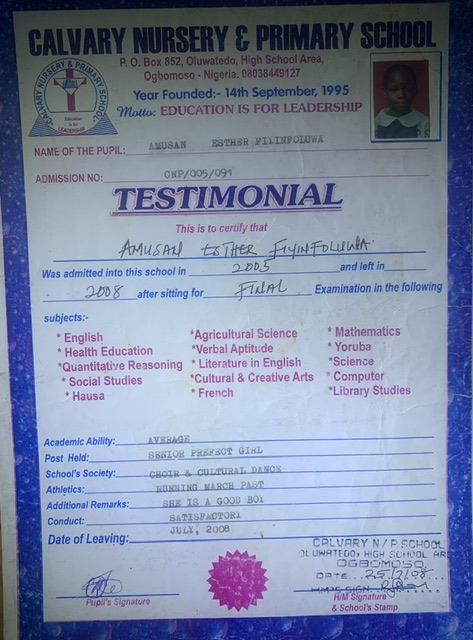 CALVARY NURSERY & PRIMARY SCHOOL
P. O. Box 852, Oluwatedo, High School Area,
Ogbomoso - Nigeria. 08038449127
Year Founded:- 14th September, 1995
Motto: EDUCATION IS FOR LEADERSHIP
CALVARY NURSERY & PRIMARY SCHOOL
Education
is for
LEADERSHIP
NAME OF THE PUPIL: AMUSAN ESTHER FIYINFOLUWA
ADMISSION NO: CNP/005/091
TESTIMONIAL
This is to certify that
AMUSAN ESTHER FIYINFOLUWA
Was admitted into this school in 2005 and left in
2008 after sitting for FINAL Examination in the following
subjects:-
* English *Agricultural Science * Mathematics
* Health Education *Verbal Aptitude * Yoruba
*Quantitative Reasoning * Literature in English *Science
* Social Studies *Cultural & Creative Arts * Computer
* Hausa * French *Library Studies
Academic Ability: AVERAGE
Post Held: SENIOR PREFECT GIRL
School's Society: CHOIR & CULTURAL DANCE
Athletics: RUNNING MARCH PAST
Additional Remarks: SHE IS A GOOD BOY
Conduct: SATISFACTORY
Date of Leaving: JULY, 2008
CALVARY N/P SCHOOL
OLUWATEDO, HIGH SCHOOL ARE
OGBOMOSO
DATE 25/7/08
SIGN
Pupil's Signature
H/M Signature
& School's Stamp